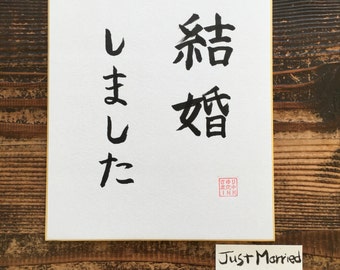 結婚
しました
Just Married